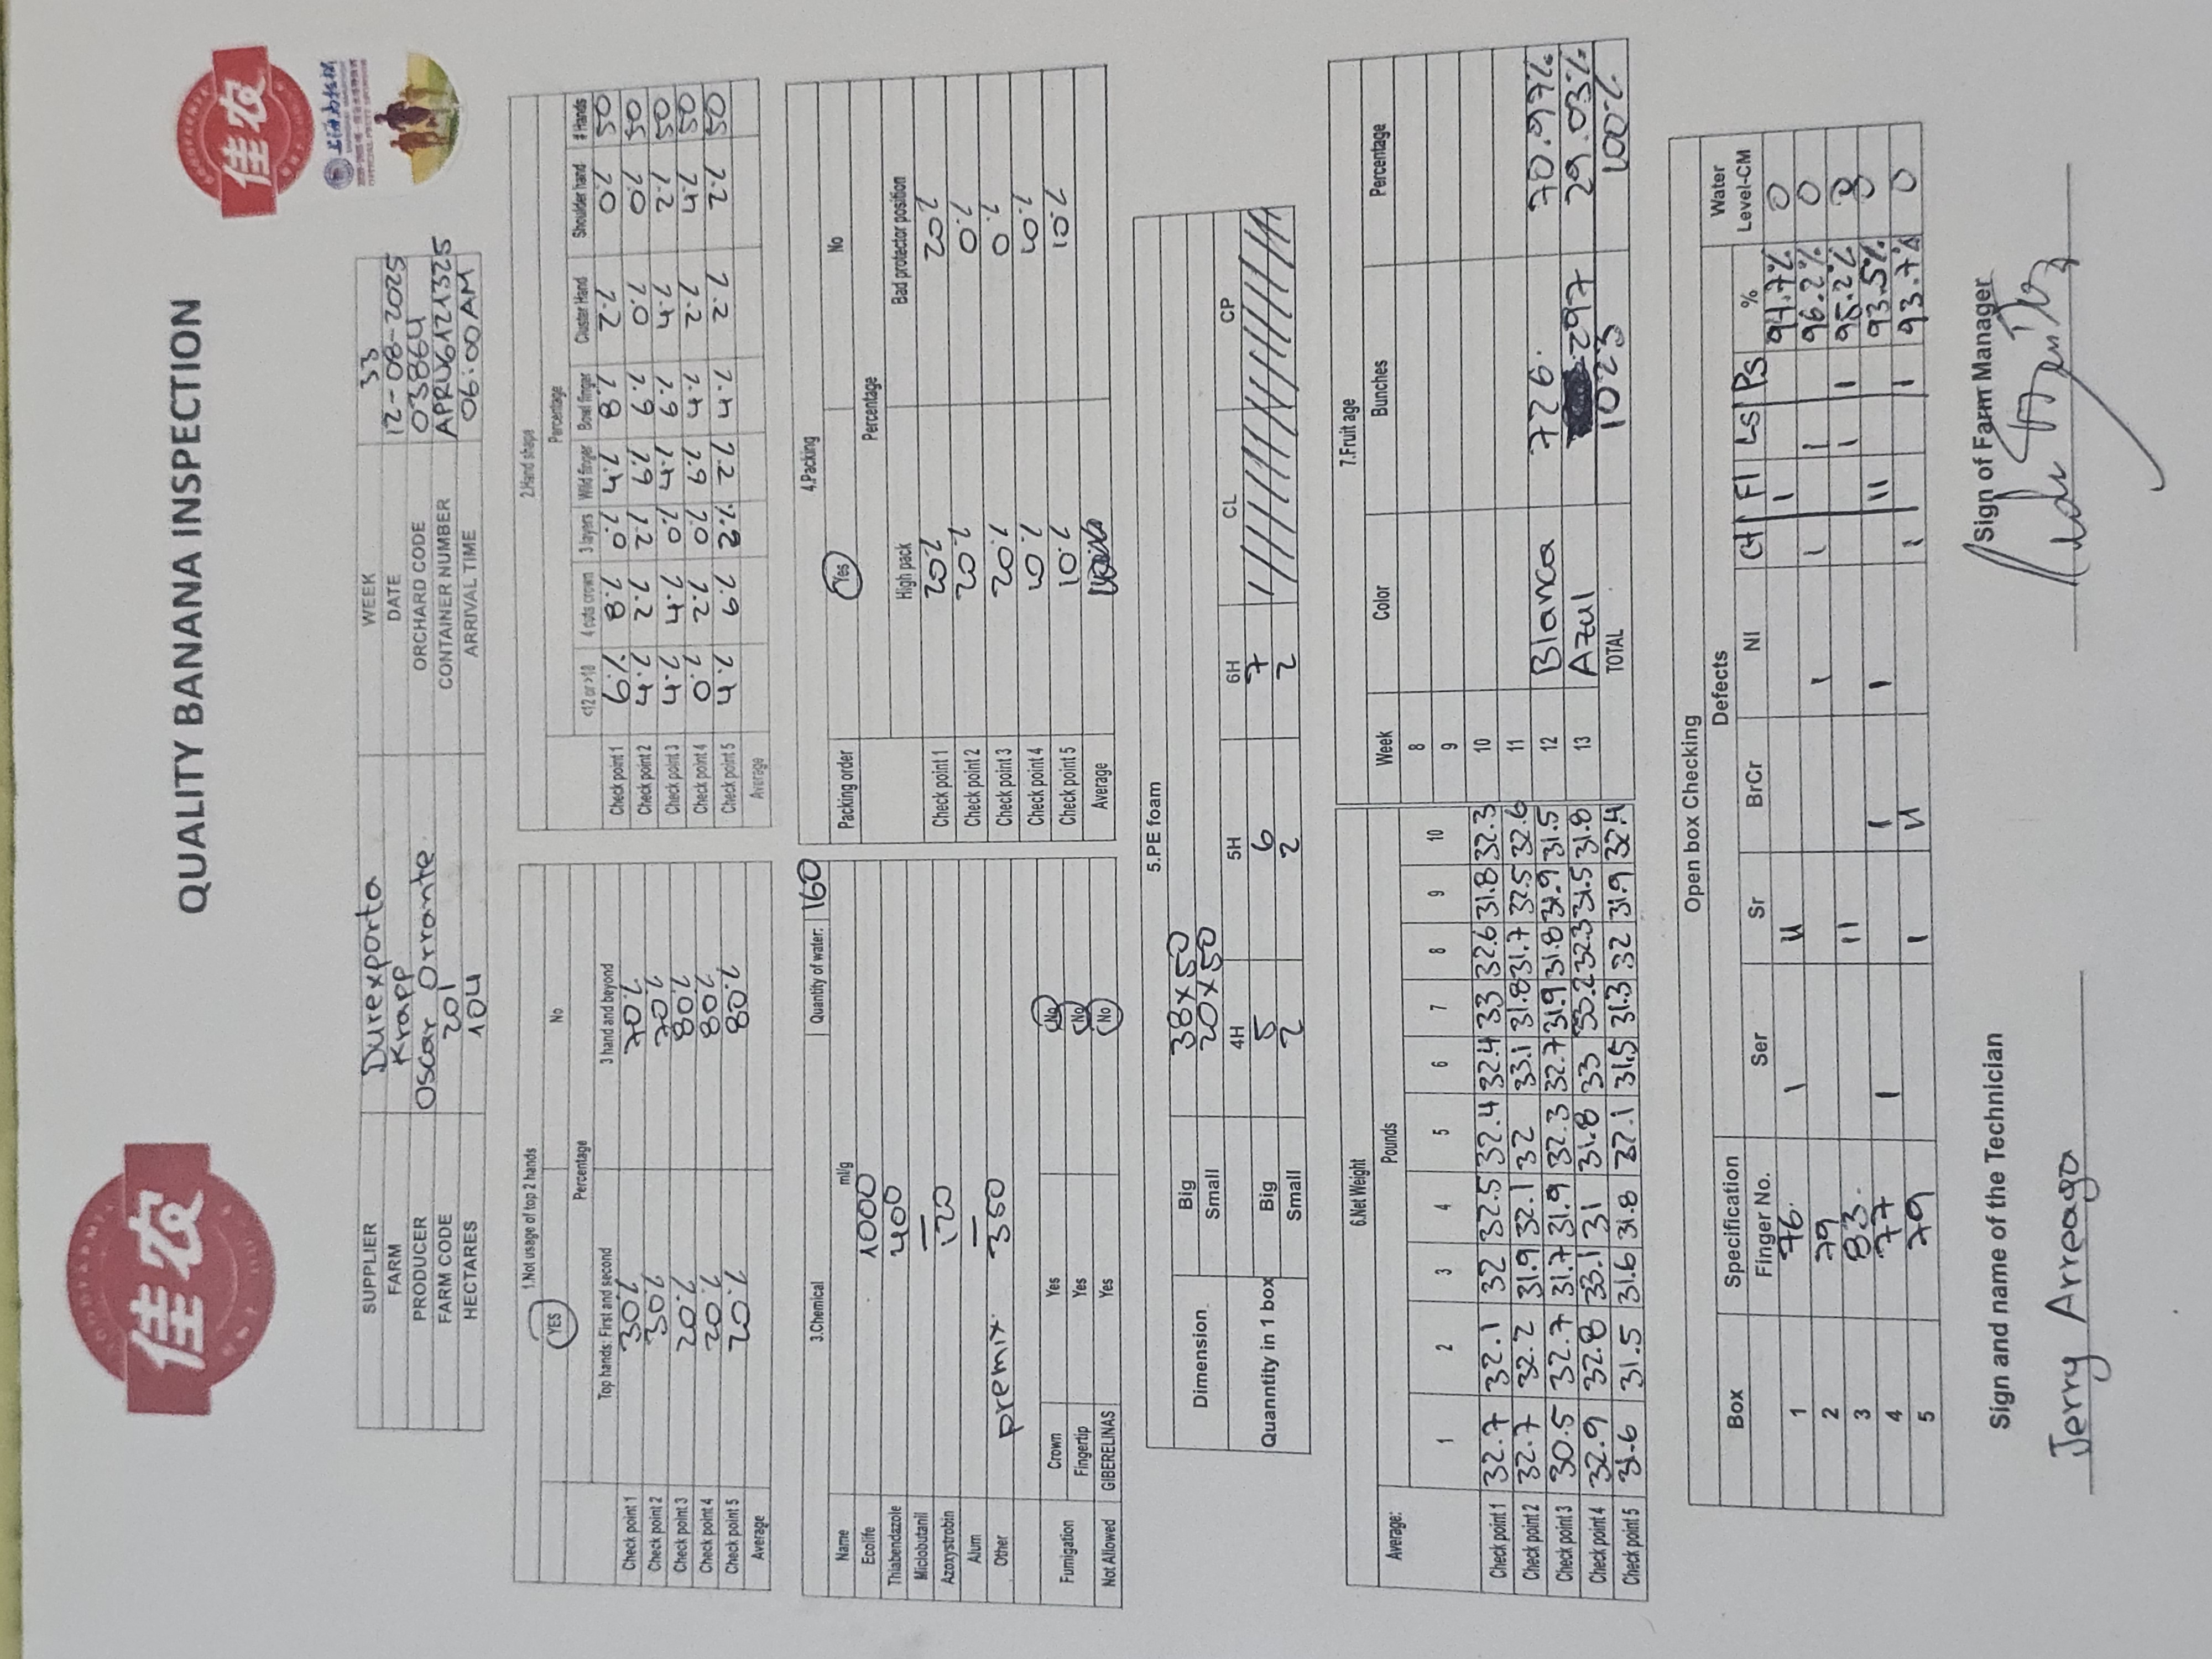 佳农
QUALITY BANANA INSPECTION
佳农
OFFICIAL FRUIT SPONSOR
SUPPLIER Durexporta WEEK 33
FARM Krapp DATE 12-08-2025
PRODUCER Oscar Orrante ORCHARD CODE 03864
FARM CODE 201 CONTAINER NUMBER APRU6121325
HECTARES 104 ARRIVAL TIME 06:00AM
1.Not usage of top 2 hands
YES No
Percentage
Top hands: First and second 3 hand and beyond
Check point 1 30% 70%
Check point 2 30% 70%
Check point 3 20% 80%
Check point 4 20% 80%
Check point 5 20% 80%
Average
2.Hand shape
Percentage
<12 or >18 4 cuts crown 3 layers Wild finger Bowl finger Cluster Hand Shoulder hand # Hands
Check point 1 6% 8% 0% 4% 8% 2% 0% 50
Check point 2 4% 2% 2% 6% 6% 0% 0% 50
Check point 3 4% 4% 0% 4% 6% 4% 2% 50
Check point 4 0% 2% 0% 6% 4% 2% 4% 50
Check point 5 4% 6% 2% 2% 4% 2% 2% 50
Average
3.Chemical Quantity of water: 160
Name ml/g
Ecolife 1000
Thiabendazole 400
Miclobutanil —
Azoxystrobin 120
Alum —
Other premix. 350
Fumigation Crown Yes No
Fingertip Yes No
Not Allowed GIBERELINAS Yes No
4.Packing
Packing order Yes No
Percentage
High pack Bad protector position
Check point 1 20% 20%
Check point 2 20% 0%
Check point 3 20% 0%
Check point 4 10% 10%
Check point 5 10% 10%
Average
5.PE foam
Dimension Big 38x50
Small 20x50
4H 5H 6H CL CP
Quanntity in 1 box Big 5 6 7
Small 2 2 2
6.Net Weight
Average: Pounds
1 2 3 4 5 6 7 8 9 10
Check point 1 32.7 32.1 32 32.5 32.4 32.4 33 32.6 31.8 32.3
Check point 2 32.7 32.2 31.9 32.1 32 33.1 31.8 31.7 32.5 32.6
Check point 3 30.5 32.7 31.7 31.9 32.3 32.7 31.9 31.8 31.9 31.5
Check point 4 32.9 32.8 33.1 31 31.8 33 33.2 32.3 31.5 31.8
Check point 5 31.6 31.5 31.6 31.8 32.1 31.5 31.3 32 31.9 32.4
7.Fruit age
Week Color Bunches Percentage
8
9
10
11
12 Blanca 726. 70.97%
13 Azul 297 29.03%
TOTAL 1023 100%
Open box Checking
Box Specification Defects Water
Finger No. Ser Sr BrCr NI CH FI LS PS % Level-CM
1 76. I II I 94.7% 0
2 79 I I I 96.2% 0
3 83. II I I 95.2% 0
4 77 I I I II 93.5% 0
5 79 I II I I 93.7% 0
Sign and name of the Technician Sign of Farm Manager
Jerry Arreaga